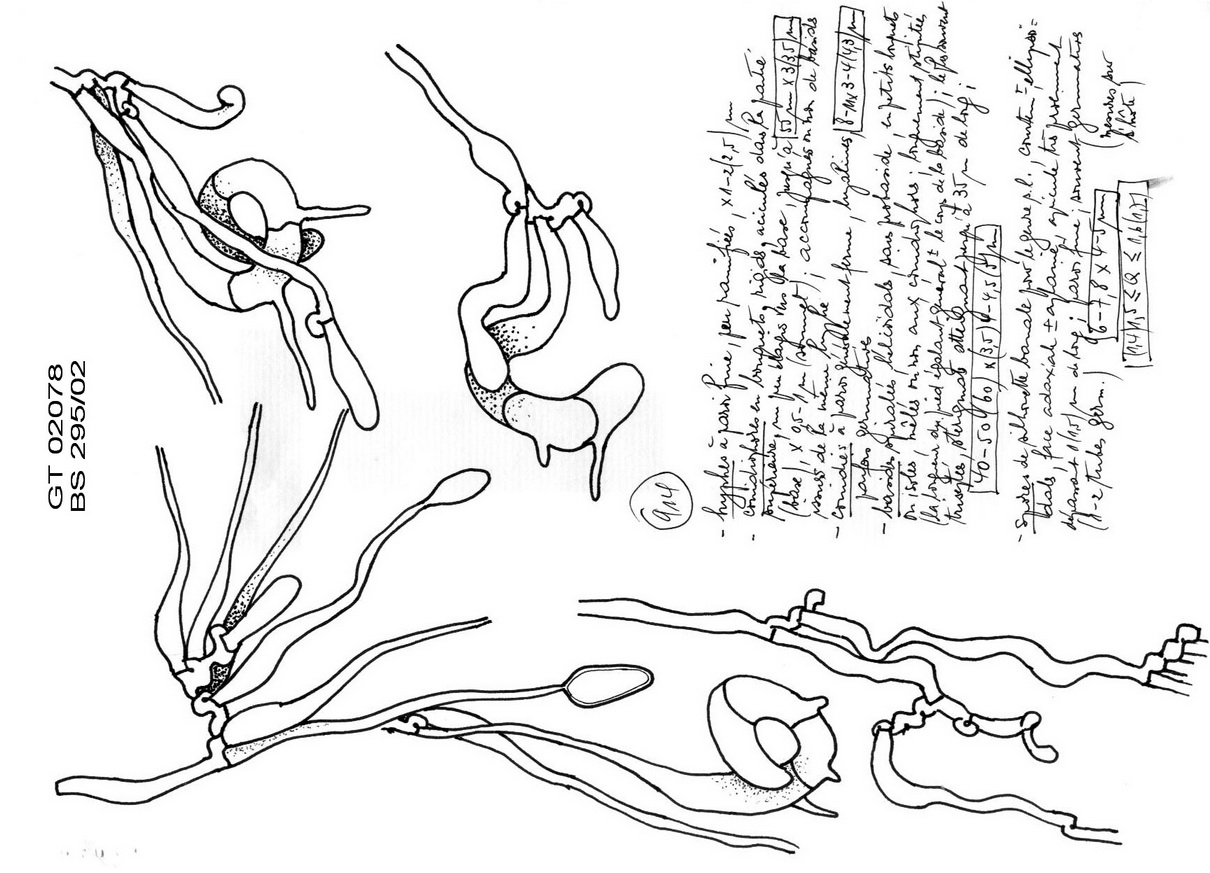 GT 02078
BS 295/02
914
- hyphes à paroi fine, peu ramifiées, x 1-2(2,5) µm
- conidiophores en bouquets, rigides, aciculés dans la partie
supérieure, un peu élargis vers la base, jusqu'à 55 µm x 3(3,5) µm
(base), x 0,5-1 µm (sommet); accompagnés ou non de basides
issues de la même hyphe
- conidies à paroi généralement ferme, hyalines, 8-11 x 3-4(4,3) µm
parfois germatives
- basides spiralées, helicoïdales, sans probaside en petits bouquets
ou isolés, mêlés ou non aux conidiophores, longuement stipitées
(la longueur du pied égalant
stérigmates atteignant jusqu'à 35 µm de long;
40-50(60) x (3,5)4-4,5(5) µm
- Spores de silhouette banale pour le genre p.l., courtem ± ellipsoï-
dales, face adaxiale ± aplanie, apicule très proéminent
dépassant 1(1,5) µm de long; paroi fine; souvent germatives
(1-2 tubes germ.) 6-7,8 x 4-5 µm (mesurées sur
(1,4)1,5 ≤ Q ≤ 1,6(1,7)